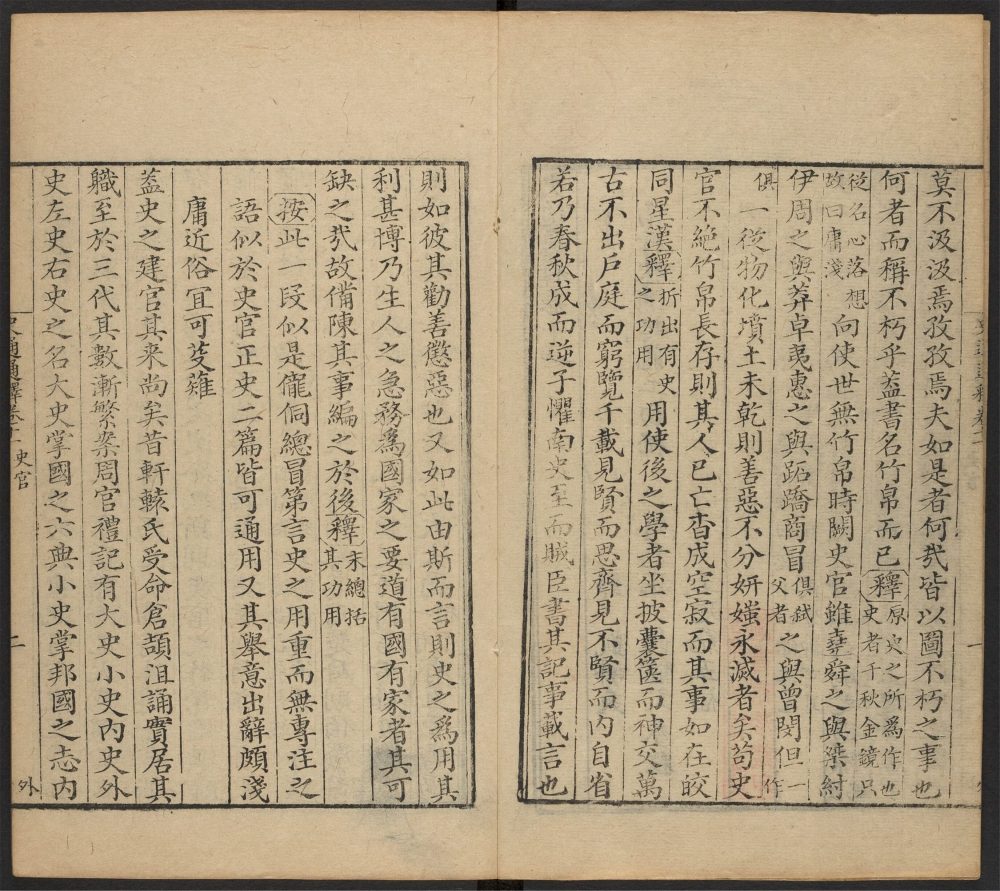 莫不汲汲焉孜孜焉夫如是者何㢤皆以圖不朽之事也
何者而稱不朽乎葢書名竹帛而已釋原史之所為作也史者千秋金鏡只
從名心落想故曰庸淺向使世無竹帛時闕史官雖堯舜之與桀紂
伊周之與莽卓夷惠之與跖蹻商冒俱弑父者之與曾閔但一作
俱一從物化墳土未乾則善惡不分妍媸永滅者矣苟史
官不絶竹帛長存則其人已亡杳成空寂而其事如在皎
同星漢釋折出有史之功用用使後之學者坐披囊篋而神交萬
古不出戶庭而窮覽千載見賢而思齊見不賢而內自省
若乃春秋成而逆子懼南史至而賊臣書其記事載言也
則如彼其勸善懲惡也又如此由斯而言則史之為用其
利甚博乃生人之急務為國家之要道有國有家者其可
缺之㢤故備陳其事編之於後釋末總括其功用
按此一段似是儱侗總冒第言史之用重而無專注之
語似於史官正史二篇皆可通用又其舉意出辭頗淺
庸近俗冝可芟薙
葢史之建官其来尚矣昔軒轅氏受命倉頡沮誦實居其
職至於三代其數漸繁案周官禮記有大史小史內史外
史左史右史之名大史掌國之六典小史掌邦國之志內
史通通釋卷十一史官
二
外